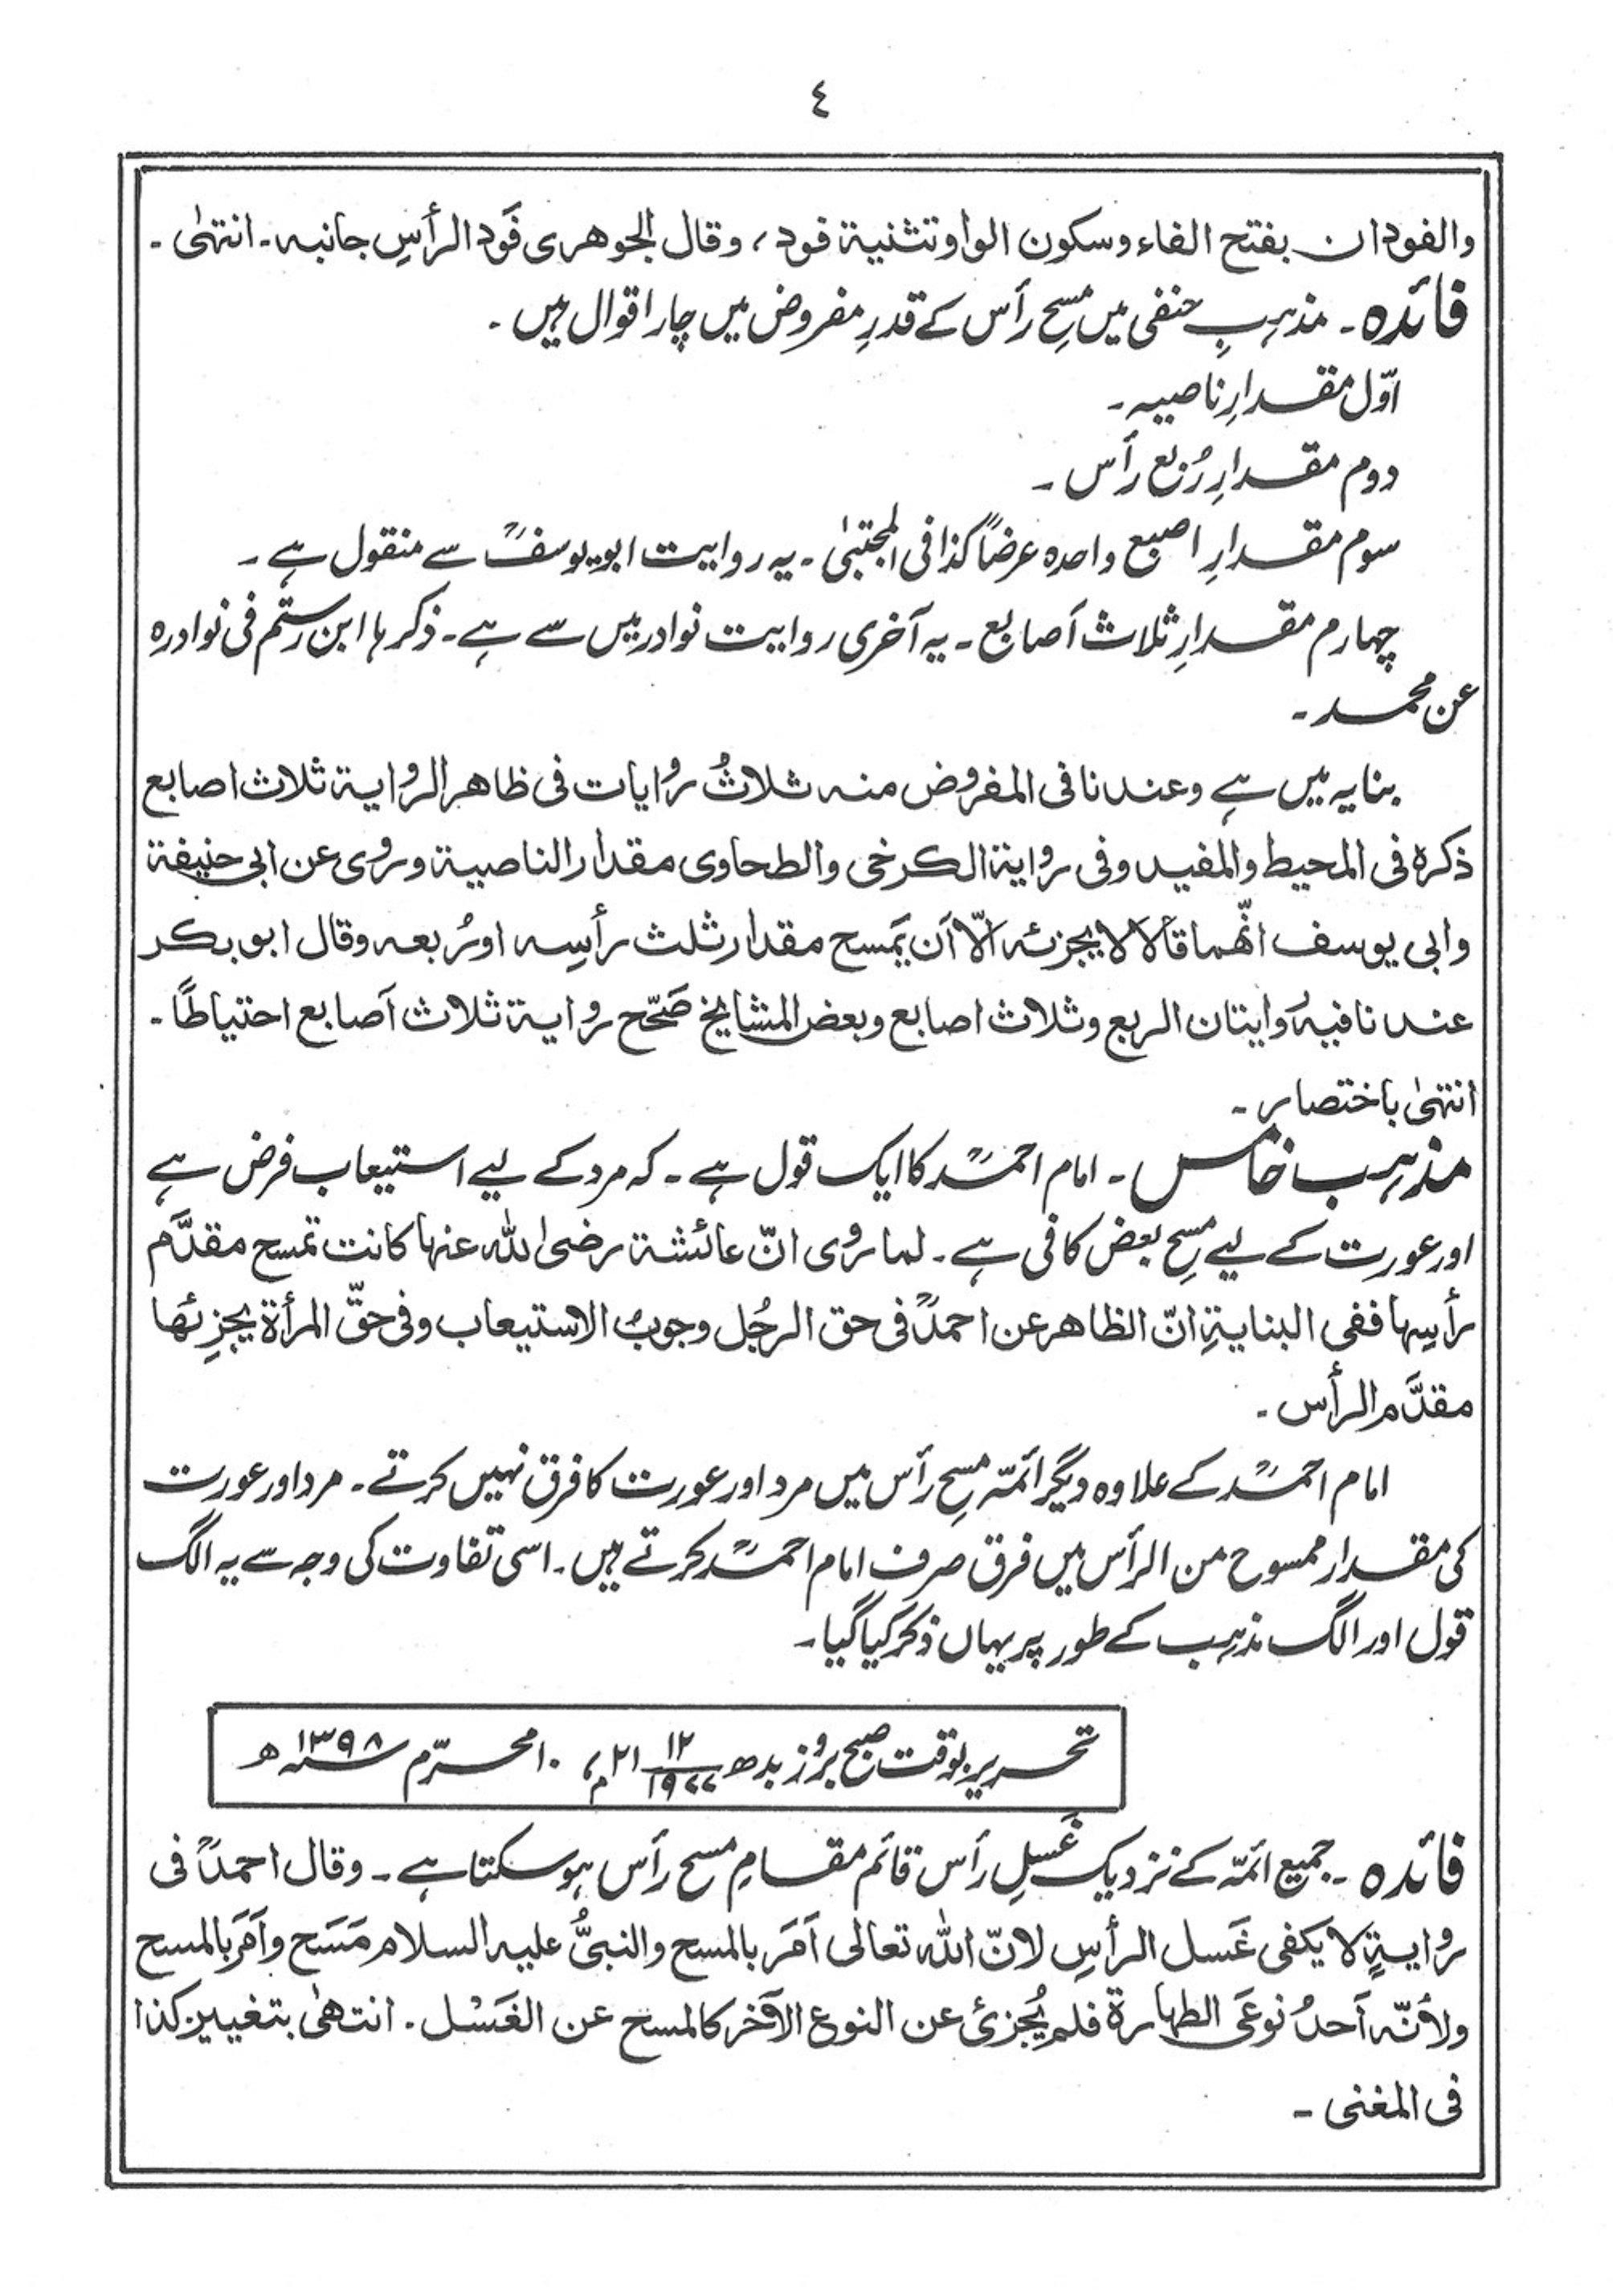 ٤
والفودان بفتح الفاء وسکون الواو تثنیة فود، وقال الجوهری فَود الرأسِ جانبه ۔ انتهٰی ۔
فائدہ ۔ مذہبِ حنفی میں مسحِ رأس کے قدرِ مفروض میں چار اقوال ہیں ۔
اوّل مقدارِ ناصیہ ۔
دوم مقدارِ رُبع رأس ۔
سوم مقدارِ اصبع واحدہ عرضاً کذا فی المجتبیٰ ۔ یہ روایت ابویوسفؒ سے منقول ہے ۔
چہارم مقدارِ ثلاث اَصابع ۔ یہ آخری روایت نوادر میں سے ہے ۔ ذکرہا ابن رستم فی نوادرہ
عن محمد ۔
بنایہ میں ہے وعندنا فی المفروض منه ثلاثُ روایات فی ظاهر الروایة ثلاث اصابع
ذکره فی المحیط والمفید وفی روایة الکرخی والطحاوی مقدار الناصیة وروی عن ابی حنیفة
وابی یوسف انّهما قالا لا یجزئه الّا اَن یَمسح مقدار ثلث رأسِه او رُبعه وقال ابو بکر
عندنا فیه رُوایتان الربع وثلاث اصابع وبعض المشایخ صَحّح روایة ثلاث اَصابع احتیاطًا ۔
انتهٰی باختصار ۔
مذہب خامس ۔ امام احمدؒ کا ایک قول ہے ۔ کہ مرد کے لیے استیعاب فرض ہے
اور عورت کے لیے مسحِ بعض کافی ہے ۔ لما روی انّ عائشة رضی الله عنها کانت تمسح مقدَّم
رأسِها ففی البنایةِ انّ الظاهر عن احمدؒ فی حق الرجُل وجوبُ الاستیعاب وفی حقّ المرأة یجزِئها
مقدَّم الرأس ۔
امام احمدؒ کے علاوہ دیگر ائمّہ مسحِ رأس میں مرد اور عورت کا فرق نہیں کرتے ۔ مرد اور عورت
کی مقدار ممسوح من الرأس میں فرق صرف امام احمدؒ کرتے ہیں ۔ اسی تفاوت کی وجہ سے یہ الگ
قول اور الگ مذہب کے طور پر یہاں ذکر کیا گیا ۔
تحریر بوقت صبح بروز بدھ ۲۱ ۱۲/۱۹۷۷ م، ۱۰ محرّم ۱۳۹۸ سنہ ھ
فائدہ ۔ جمیع ائمّہ کے نزدیک غَسلِ رأس قائم مقامِ مسح رأس ہوسکتا ہے ۔ وقال احمدؒ فی
روایةٍ لا یکفی غَسل الرأسِ لانّ الله تعالی اَمَر بالمسح والنبیُّ علیه السلام مَسَح واَمَر بالمسح
ولأنّه اَحدُ نوعَی الطهارة فلم یُجزئ عن النوع الآخر کالمسح عن الغَسْل . انتهٰی بتغییر کذا
فی المغنی ۔